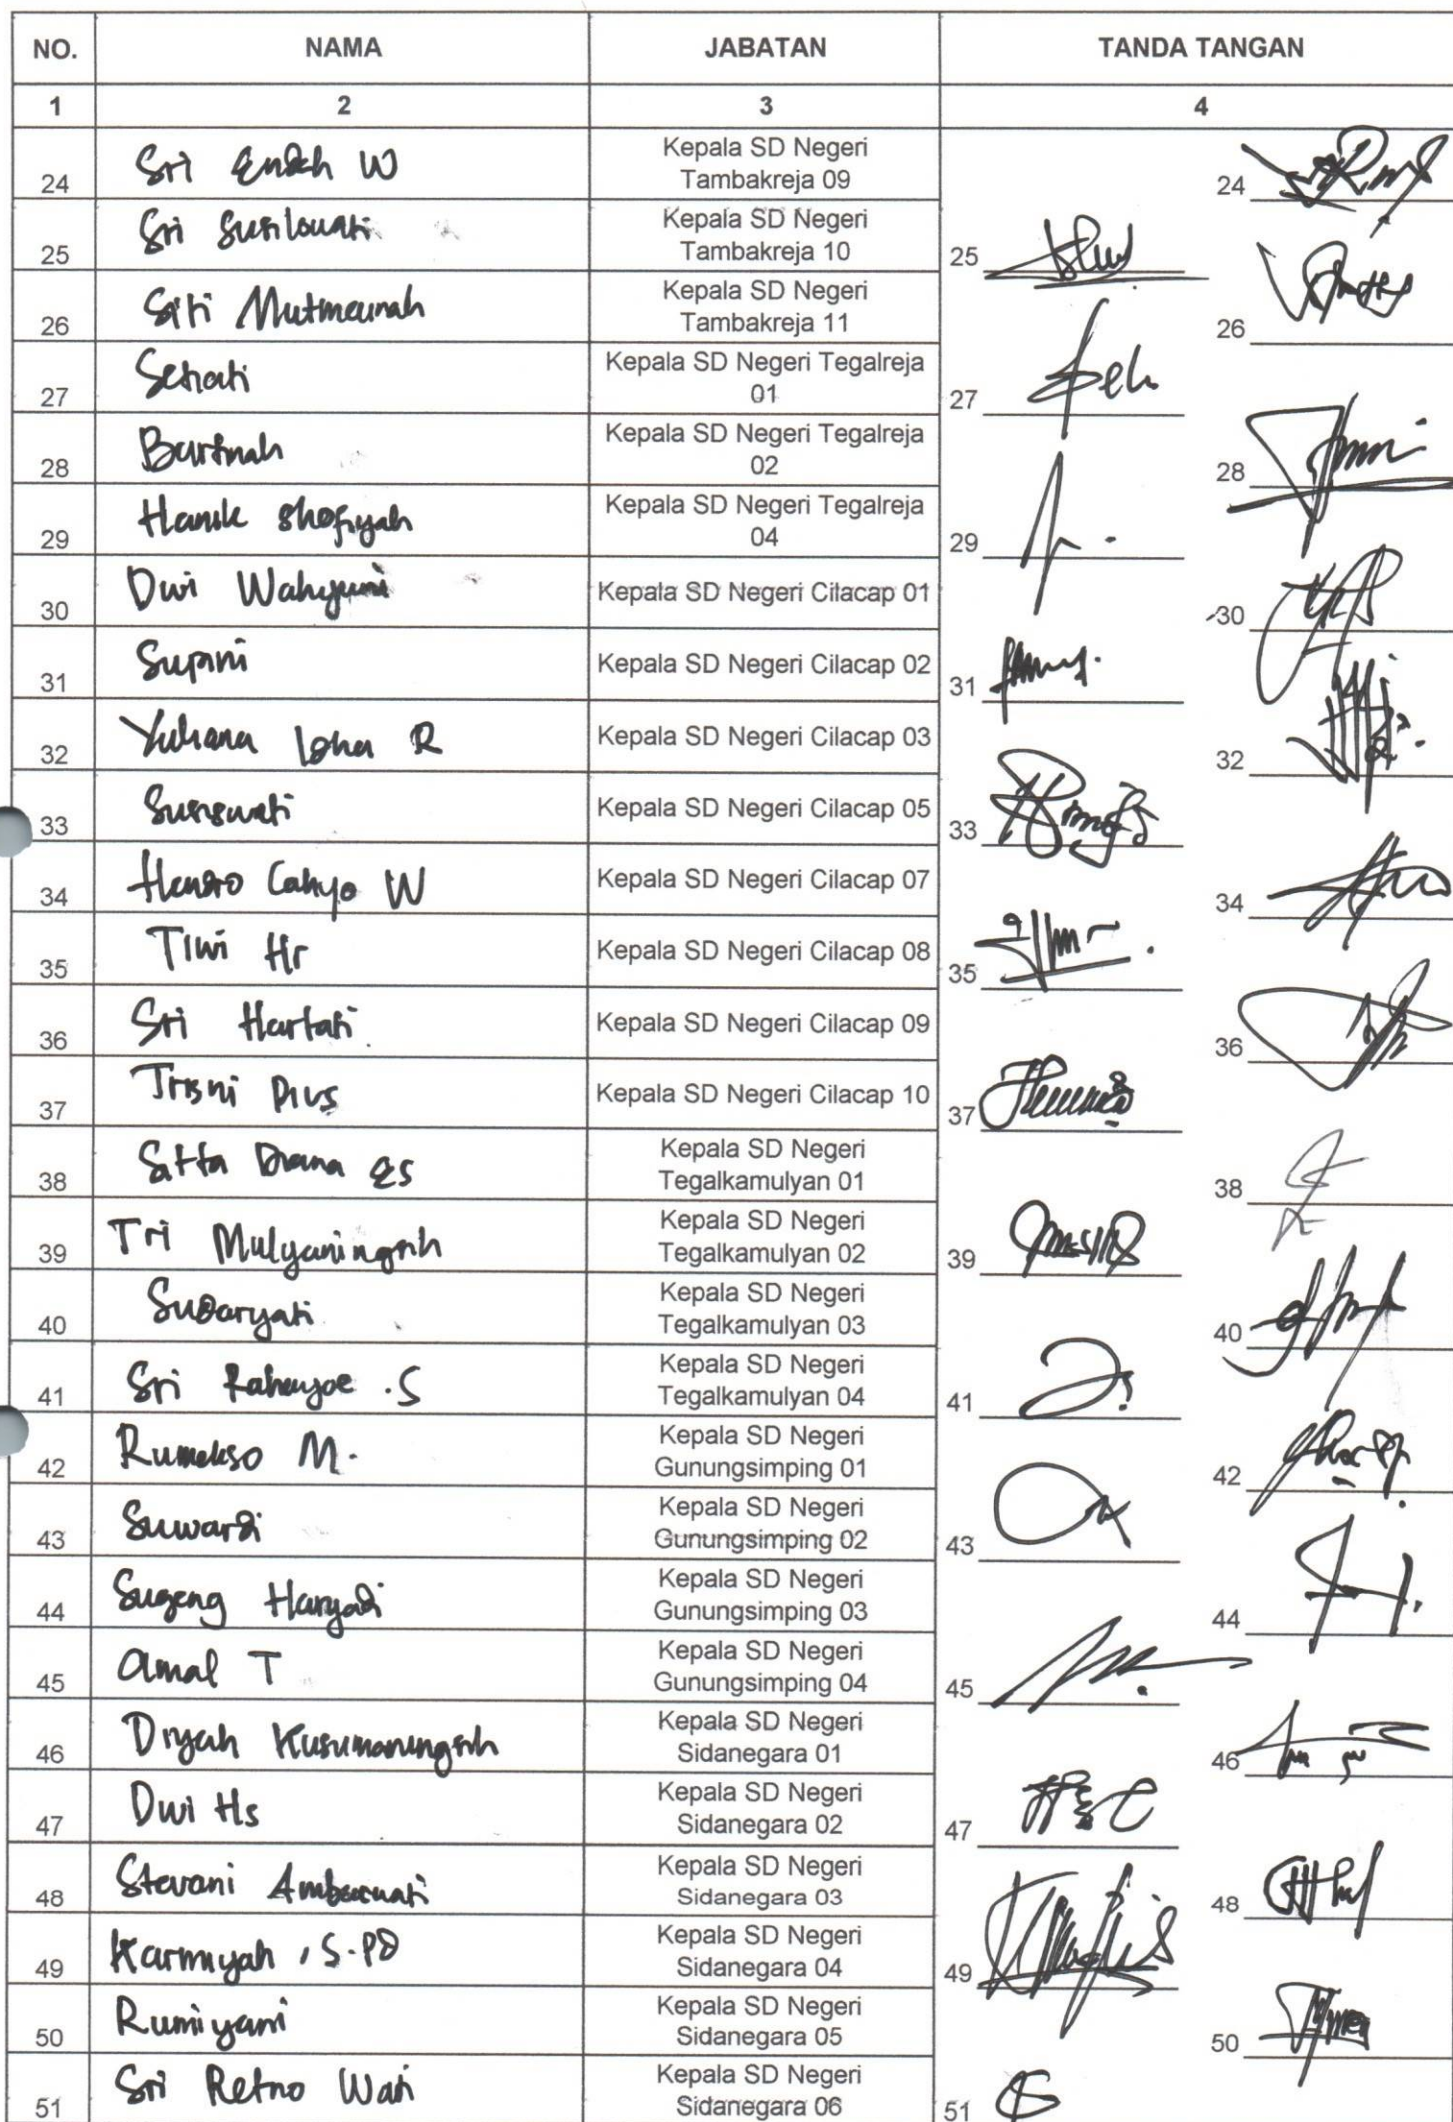 NO. NAMA JABATAN TANDA TANGAN
1 2 3 4
24 Sri Endah W Kepala SD Negeri Tambakreja 09 24
25 Sri Susilowati Kepala SD Negeri Tambakreja 10 25
26 Siti Mutmainah Kepala SD Negeri Tambakreja 11 26
27 Setiati Kepala SD Negeri Tegalreja 01 27
28 Kepala SD Negeri Tegalreja 02 28
29 Hanik Shofiyah Kepala SD Negeri Tegalreja 04 29
30 Dwi Wahyuni Kepala SD Negeri Cilacap 01 30
31 Suparni Kepala SD Negeri Cilacap 02 31
32 Yuliana R Kepala SD Negeri Cilacap 03 32
33 Susiswati Kepala SD Negeri Cilacap 05 33
34 Hendro Cahyo W Kepala SD Negeri Cilacap 07 34
35 Tiwi Hr Kepala SD Negeri Cilacap 08 35
36 Sri Hartati Kepala SD Negeri Cilacap 09 36
37 Trisni Kepala SD Negeri Cilacap 10 37
38 Sitta Diana ES Kepala SD Negeri Tegalkamulyan 01 38
39 Tri Mulyaningsih Kepala SD Negeri Tegalkamulyan 02 39
40 Sudaryati Kepala SD Negeri Tegalkamulyan 03 40
41 Sri Rahayoe .S Kepala SD Negeri Tegalkamulyan 04 41
42 Rumekso M. Kepala SD Negeri Gunungsimping 01 42
43 Suwardi Kepala SD Negeri Gunungsimping 02 43
44 Sugeng Haryadi Kepala SD Negeri Gunungsimping 03 44
45 Amal T Kepala SD Negeri Gunungsimping 04 45
46 Diyah Kusumaningsih Kepala SD Negeri Sidanegara 01 46
47 Dwi Hs Kepala SD Negeri Sidanegara 02 47
48 Stevani Ambarwati Kepala SD Negeri Sidanegara 03 48
49 Karmiyah, S.Pd Kepala SD Negeri Sidanegara 04 49
50 Rumiyani Kepala SD Negeri Sidanegara 05 50
51 Sri Retno Wati Kepala SD Negeri Sidanegara 06 51